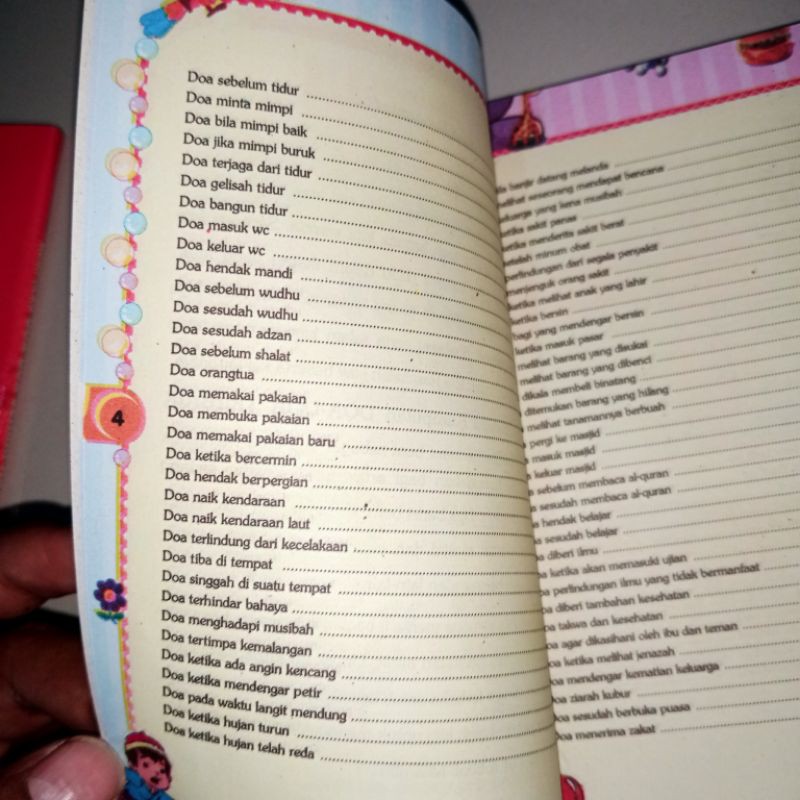 Doa sebelum tidur ........................
Doa minta mimpi ........................
Doa bila mimpi baik ........................
Doa jika mimpi buruk ........................
Doa terjaga dari tidur ........................
Doa gelisah tidur ........................
Doa bangun tidur ........................
Doa masuk wc ........................
Doa keluar wc ........................
Doa hendak mandi ........................
Doa sebelum wudhu ........................
Doa sesudah wudhu ........................
Doa sesudah adzan ........................
Doa sebelum shalat ........................
Doa orangtua ........................
Doa memakai pakaian ........................
Doa membuka pakaian ........................
Doa memakai pakaian baru ........................
Doa ketika bercermin ........................
Doa hendak berpergian ........................
Doa naik kendaraan ........................
Doa naik kendaraan laut ........................
Doa terlindung dari kecelakaan ........................
Doa tiba di tempat ........................
Doa singgah di suatu tempat ........................
Doa terhindar bahaya ........................
Doa menghadapi musibah ........................
Doa tertimpa kemalangan ........................
Doa ketika ada angin kencang ........................
Doa ketika mendengar petir ........................
Doa pada waktu langit mendung ........................
Doa ketika hujan turun ........................
Doa ketika hujan telah reda ........................
4
banjir datang melanda ........................
seseorang mendapat bencana ........................
yang kena musibah ........................
sakit panas ........................
menderita sakit berat ........................
minum obat ........................
perlindungan dari segala penyakit ........................
menjenguk orang sakit ........................
ketika melihat anak yang lahir ........................
ketika bersin ........................
bagi yang mendengar bersin ........................
ketika masuk pasar ........................
melihat barang yang disukai ........................
melihat barang yang dibenci ........................
dikala membeli binatang ........................
ditemukan barang yang hilang ........................
melihat tanamannya berbuah ........................
pergi ke masjid ........................
masuk masjid ........................
keluar masjid ........................
sebelum membaca al-quran ........................
sesudah membaca al-quran ........................
hendak belajar ........................
sesudah belajar ........................
diberi ilmu ........................
ketika akan memasuki ujian ........................
perlindungan ilmu yang tidak bermanfaat ........................
diberi tambahan kesehatan ........................
takwa dan kesehatan ........................
agar dikasihani oleh ibu dan teman ........................
ketika melihat jenazah ........................
mendengar kematian keluarga ........................
ziarah kubur ........................
sesudah berbuka puasa ........................
menerima zakat ........................